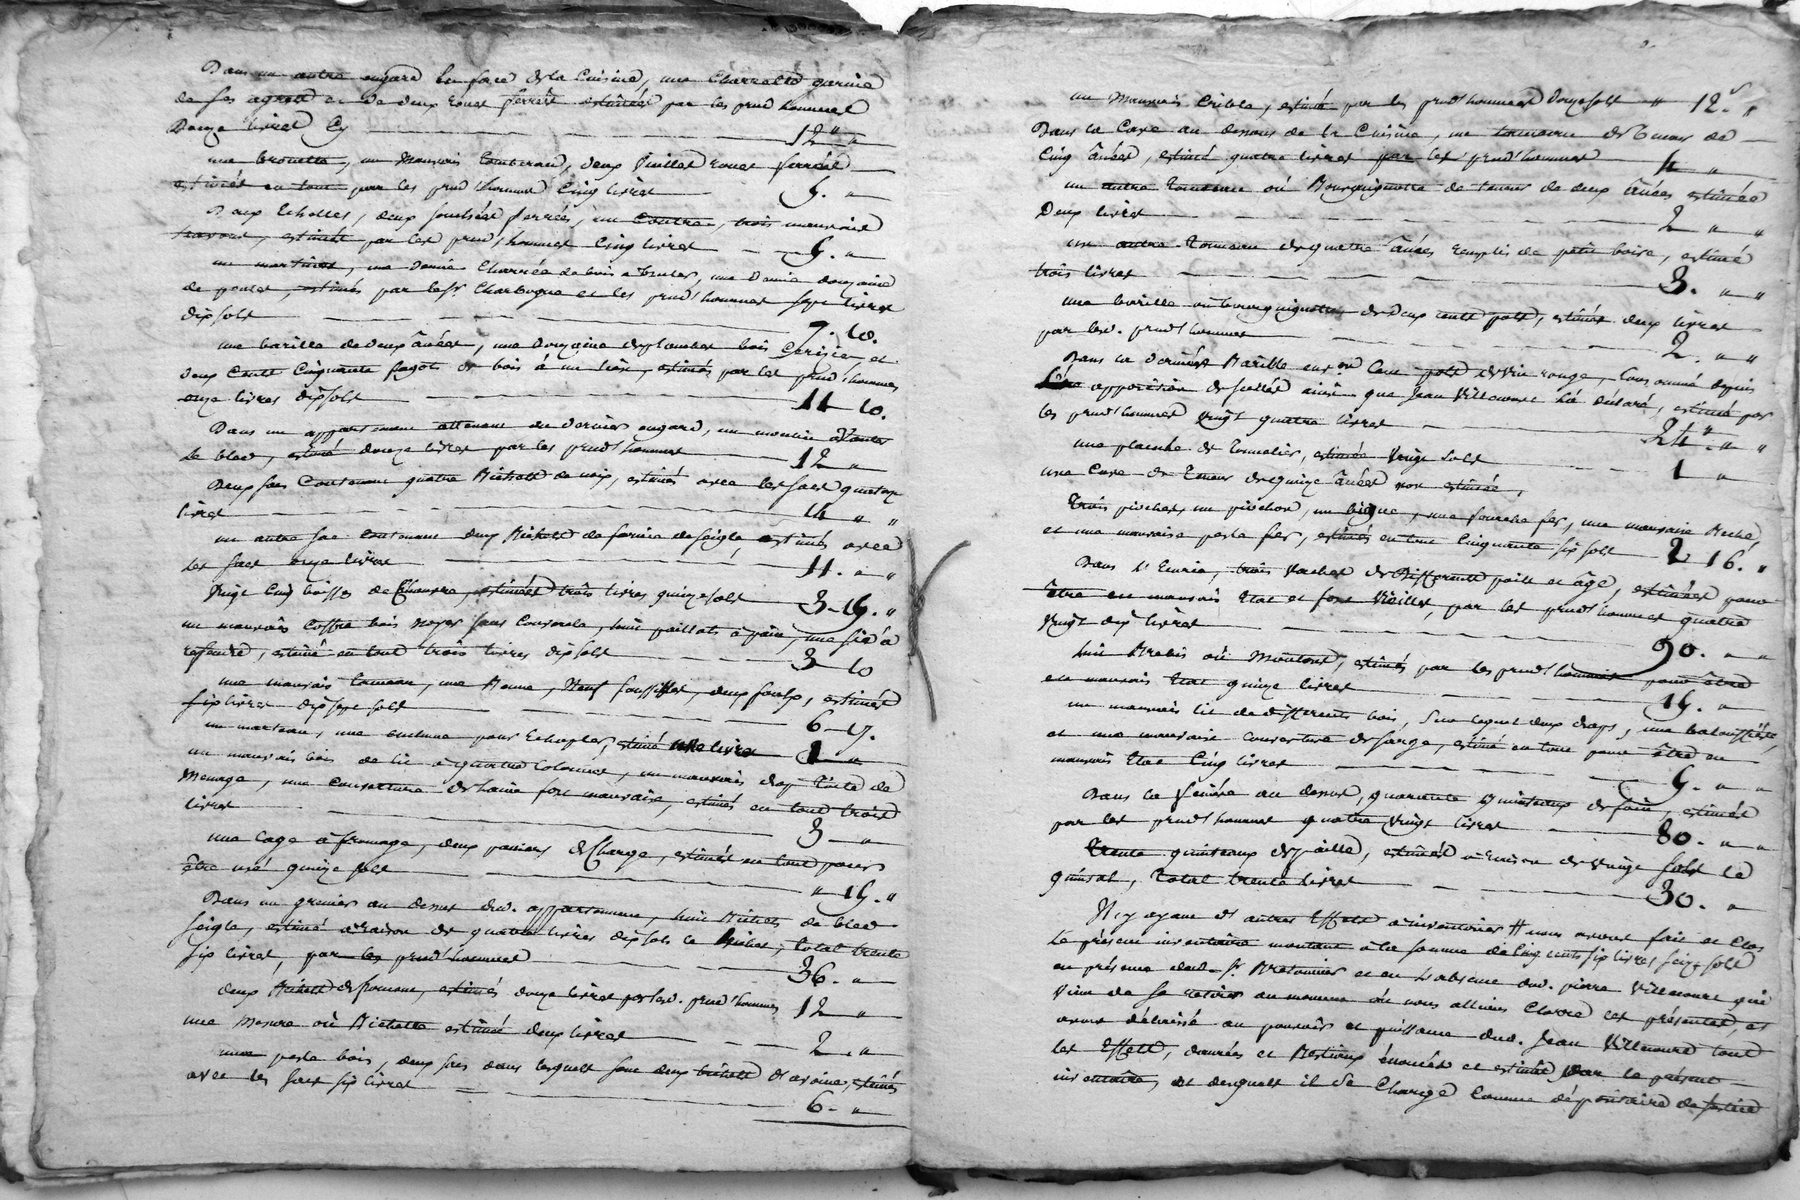 Dans un autre angard en face de la Cuisine, une Charrette garnie
de ses agrets et de deux roues ferrées estimées par les prud'hommes
Douze livres Cy 12 "
une brouette, un Mauvais Tombereau, deux vieilles roues ferrées
estimées en tout par les prud'hommes Cinq livres 5. "
Deux Echelles, deux ferrées, un Coutre, trois mauvais
estimés par les prud'hommes Cinq livres 5. "
une demie Charrée de bois a bruler, une Demie douzaine
de estimés par les prud'hommes sept livres
dix sols 7. 10.
une barille de deux ânées, une Douzaine de planches bois Cerisier et
deux Cents Cinquante fagots de bois à un lien, estimés par les prud'hommes
onze livres dix sols 11 10.
Dans un appartement attenant au dernier angard, un moulin à vanter
le bled, estimé douze livres par les prud'hommes 12 "
Deux sacs Contenant quatre Bichets de noix, estimés avec les sacs quatorze
livres 14 " "
un autre sac contenant deux Bichets de farine de seigle, estimés avec
les sacs onze livres 11. " "
Vingt Cinq de Chanvre, estimées trois livres quinze sols 3 - 15. "
un mauvais Coffre bois noyer sans Couvercle, huit paillats à pain, une sie à
refendre, estimé en tout trois livres dix sols 3 10
une mauvais tonneau, une Benne, Neuf deux estimés
six livres dix sept sols 6 - 17.
un marteau, une enclume pour Echapler, estimé une livre 1 "
un mauvais bois de lit à quatre Colonnes, un mauvais drap toile de
Menage, une Couverture de laine fort mauvaise, estimés en tout trois
livres 3 - "
une cage à fromage, deux paniers de Charge, estimés en tout pour
être usé quinze sols " 15. "
Dans un grenier au dessus dud. appartement, huit Bichets de bled
seigle, estimé à raison de quatre livres dix sols le Bichet, total trente
six livres, par les prud'hommes 36. "
deux Bichets de froment, estimés douze livres par lesd. prud'hommes 12 "
une Mesure où Bichette estimée deux livres 2. "
une pesle bois, deux sacs dans lesquels sont deux bichets d'avoine, estimés
avec les sacs six livres 6 - "
un Mauvais Crible, estimé par les prud'hommes Douze sols " 12.s "
Dans la Cave au dessous de la Cuisine, un tonneau de tenue de
Cinq ânées, estimé quatre livres par les prud'hommes 4 "
un autre tonneau où Bourguignotte de tenue de deux ânées estimée
Deux livres 2 " "
un autre tonneau de quatre ânées remplis de petit boire, estimé
trois livres 3. " "
une barille ou bourguignotte de deux cents pots, estimée deux livres
par lesd. prud'hommes 2. " "
Dans la dernière Barille est Cent pots de vin rouge, Consommé depuis
apposition de scellés ainsi que Jean Villemont l'a déclaré, estimé par
les prud'hommes vingt quatre livres 24 " "
une planche de Tonnelier, estimée vingt sols 1 "
une Cuve de Tenue de quinze ânées non estimée,
Trois pioches, un piochon, un bigue, une fourche fer, une mauvaise Beche
et une mauvaise pesle fer, estimés en tout Cinquante six sols 2 16. "
Dans l'Ecurie, trois vaches de Differents poils et âge, estimées pour
être en mauvais Etat et fort Vieilles, par les prud'hommes quatre
vingt dix livres 90. " "
huit Brebis où Moutons, estimés par les prud'hommes pour être
en mauvais Etat quinze livres 15. "
un mauvais lit de differents bois, sur lequel deux draps, une
et une mauvaise couverture de sarge, estimé en tout pour être en
mauvais Etat Cinq livres 5. " "
Dans la fenière au dessus, quarante quinteaux de foin, estimés
par les prud'hommes quatre vingt livres 80. " "
Trente quinteaux de paille, estimés à raison de vingt sols le
quintal, total trente livres 30. "
N'y ayant et autres Effets a inventorier nous avons fait et Clos
le présent inventaire montant à la somme de Cinq cents six livres seize sols
en présence dud. Sr. Bretonnier et en l'absence dud. pierre Villemont qui
vient de se retirer au moment où nous allions Clorre ces présentes, et
avons délaissé au pouvoir et puissance dud. Jean Villemont tout
les Effets, denrées et Bestiaux énoncés et estimés par le présent
inventaire, et desquels il se Charge Comme dépositaire de justice